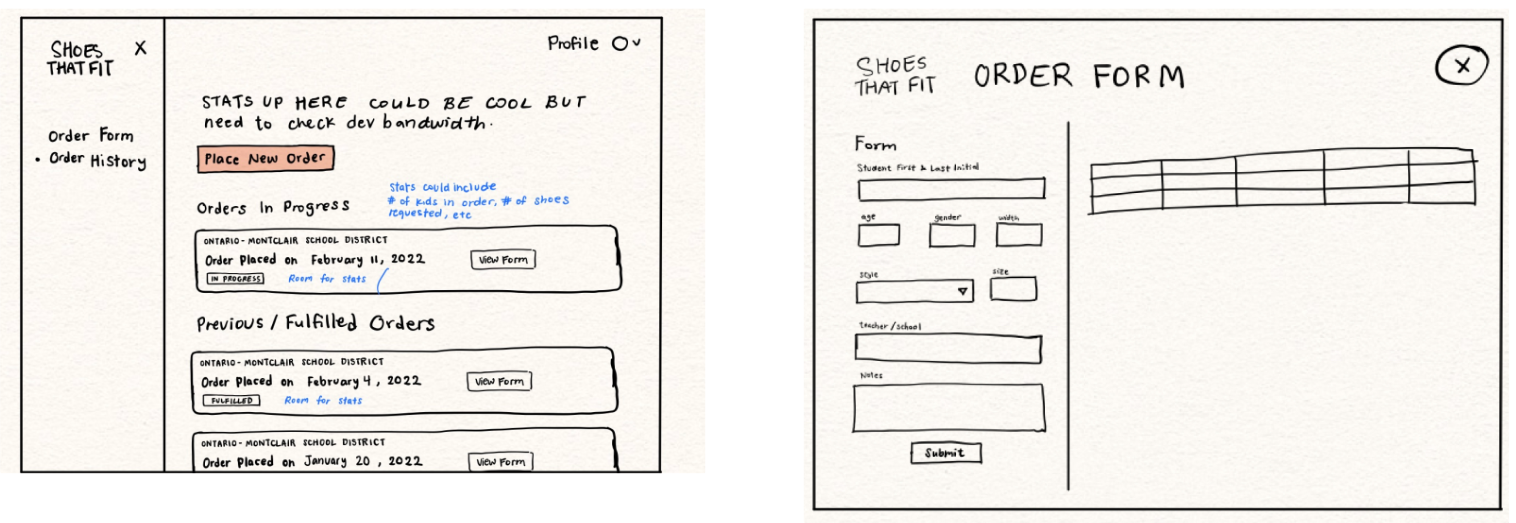 SHOES X
THAT FIT
Order Form
• Order History
Profile
STATS UP HERE COULD BE COOL BUT
need to check dev bandwidth.
Place New Order
Stats could include
# of kids in order, # of shoes
requested, etc
Orders In Progress
ONTARIO-MONTCLAIR SCHOOL DISTRICT
Order Placed on February 11, 2022
View Form
IN PROGRESS
Room for stats
Previous / Fulfilled Orders
ONTARIO-MONTCLAIR SCHOOL DISTRICT
Order Placed on February 4, 2022
View Form
FULFILLED
Room for stats
ONTARIO-MONTCLAIR SCHOOL DISTRICT
Order Placed on January 20, 2022
View Form
SHOES
THAT FIT
ORDER FORM
X
Form
Student First & Last Initial
age gender width
style size
teacher/school
Notes
Submit